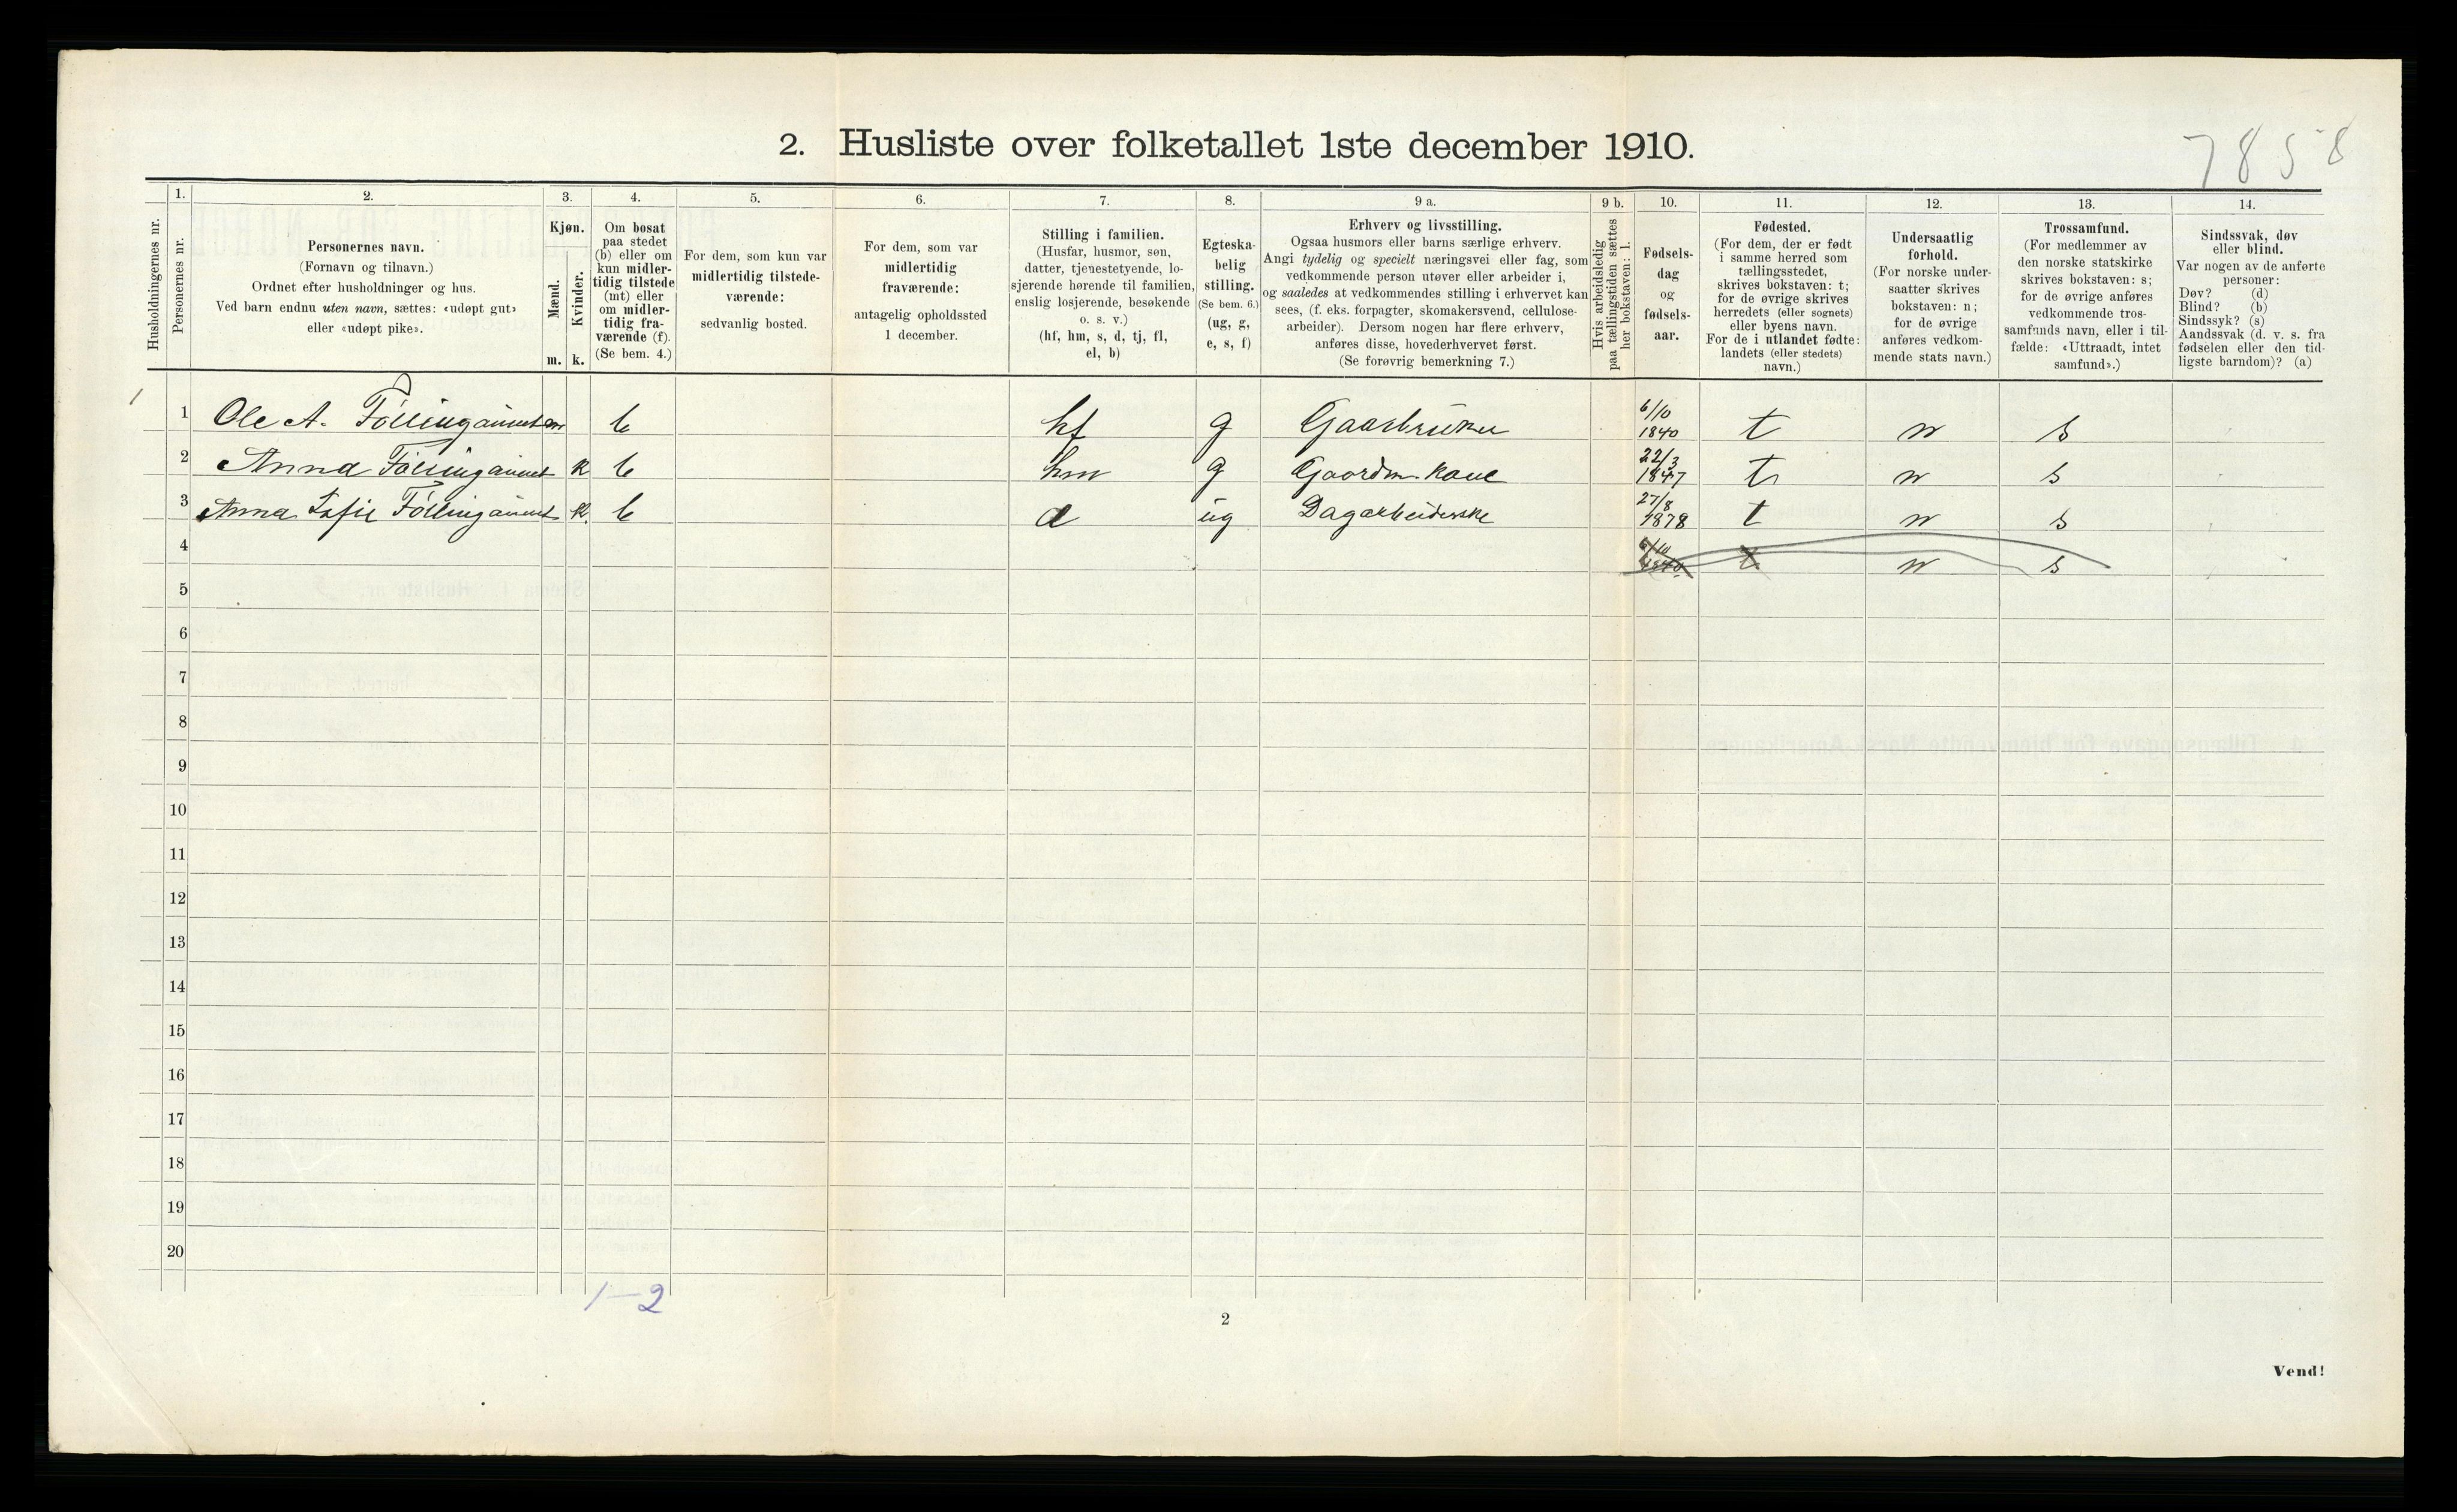 2. Husliste over folketallet 1ste december 1910.
7858
Husholdningernes nr.
1.
Personernes nr.
2.
Personernes navn.
(Fornavn og tilnavn.)
Ordnet efter husholdninger og hus.
Ved barn endnu uten navn, sættes: «udøpt gut»
eller «udøpt pike».
3.
Kjøn.
Mænd.
Kvinder.
m. k.
4.
Om bosat
paa stedet
(b) eller om
kun midler-
tidig tilstede
(mt) eller
om midler-
tidig fra-
værende (f).
(Se bem. 4.)
5.
For dem, som kun var
midlertidig tilstede-
værende:
sedvanlig bosted.
6.
For dem, som var
midlertidig
fraværende:
antagelig opholdssted
1 december.
7.
Stilling i familien.
(Husfar, husmor, søn,
datter, tjenestetyende, lo-
sjerende hørende til familien,
enslig losjerende, besøkende
o. s. v.)
(hf, hm, s, d, tj, fl,
el, b)
8.
Egteska-
belig
stilling.
(Se bem. 6.)
(ug, g,
e, s, f)
9 a.
Erhverv og livsstilling.
Ogsaa husmors eller barns særlige erhverv.
Angi tydelig og specielt næringsvei eller fag, som
vedkommende person utøver eller arbeider i,
og saaledes at vedkommendes stilling i erhvervet kan
sees, (f. eks. forpagter, skomakersvend, cellulose-
arbeider). Dersom nogen har flere erhverv,
anføres disse, hovederhvervet først.
(Se forøvrig bemerkning 7.)
9 b.
Hvis arbeidsledig
paa tællingstiden sættes
her bokstaven: l.
10.
Fødsels-
dag
og
fødsels-
aar.
11.
Fødested.
(For dem, der er født
i samme herred som
tællingsstedet,
skrives bokstaven: t;
for de øvrige skrives
herredets (eller sognets)
eller byens navn.
For de i utlandet fødte:
landets (eller stedets)
navn.)
12.
Undersaatlig
forhold.
(For norske under-
saatter skrives
bokstaven: n;
for de øvrige
anføres vedkom-
mende stats navn.)
13.
Trossamfund.
(For medlemmer av
den norske statskirke
skrives bokstaven: s;
for de øvrige anføres
vedkommende tros-
samfunds navn, eller i til-
fælde: «Uttraadt, intet
samfund».)
14.
Sindssvak, døv
eller blind.
Var nogen av de anførte
personer:
Døv? (d)
Blind? (b)
Sindssyk? (s)
Aandssvak (d. v. s. fra
fødselen eller den tid-
ligste barndom)? (a)
1 1 Ole A. m b hf g 6/10 1840 t n s
2 Anna k b hm g Gaardm. Kone 22/3 1847 t n s
3 Anna k. b d ug Dagarbeiderske 27/8 1878 t n s
4 6/10 1840 t n s
5
6
7
8
9
10
11
12
13
14
15
16
17
18
19
20
1-2
2
Vend!